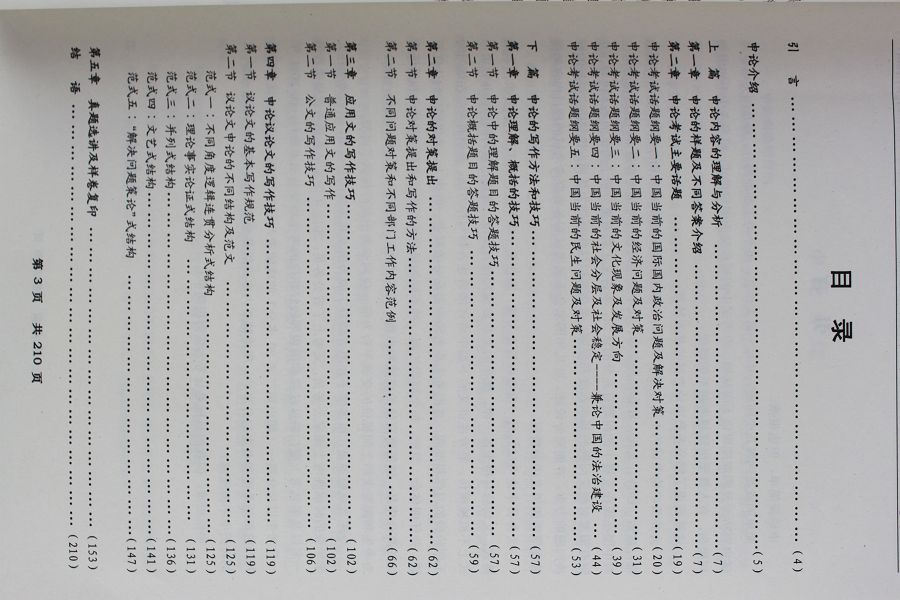 目 录
引 言 ……………………………… (4)
申论介绍 ……………………………… (5)
上 篇 申论内容的理解与分析 ……………………………… (7)
第一章 申论的样题及不同答案介绍 ……………………………… (7)
第二章 申论考试主要话题 ……………………………… (19)
申论考试话题纲要一：中国当前的国际国内政治问题及解决对策 ……………………………… (20)
申论考试话题纲要二：中国当前的经济问题及对策 ……………………………… (31)
申论考试话题纲要三：中国当前的文化现象及发展方向 ……………………………… (39)
申论考试话题纲要四：中国当前的社会分层及社会稳定——兼论中国的法治建设 … (44)
申论考试话题纲要五：中国当前的民生问题及对策 ……………………………… (53)
下 篇 申论的写作方法和技巧 ……………………………… (57)
第一章 申论理解、概括的技巧 ……………………………… (57)
第一节 申论中的理解题目的答题技巧 ……………………………… (57)
第二节 申论概括题目的答题技巧 ……………………………… (59)
第二章 申论的对策提出 ……………………………… (62)
第一节 申论对策提出和写作的方法 ……………………………… (62)
第二节 不同问题对策和不同部门工作内容范例 ……………………………… (66)
第三章 应用文的写作技巧 ……………………………… (102)
第一节 普通应用文的写作 ……………………………… (102)
第二节 公文的写作技巧 ……………………………… (106)
第四章 申论议论文的写作技巧 ……………………………… (119)
第一节 议论文的基本写作规范 ……………………………… (119)
第二节 议论文申论的不同结构及范文 ……………………………… (125)
范式一：不同角度逻辑连贯分析式结构 ……………………………… (125)
范式二：理论事实论证式结构 ……………………………… (131)
范式三：并列式结构 ……………………………… (136)
范式四：文艺式结构 ……………………………… (141)
范式五：“解决问题策论”式结构 ……………………………… (147)
第五章 真题选讲及样卷复印 ……………………………… (153)
结 语 ……………………………… (210)
第 3 页 共 210 页